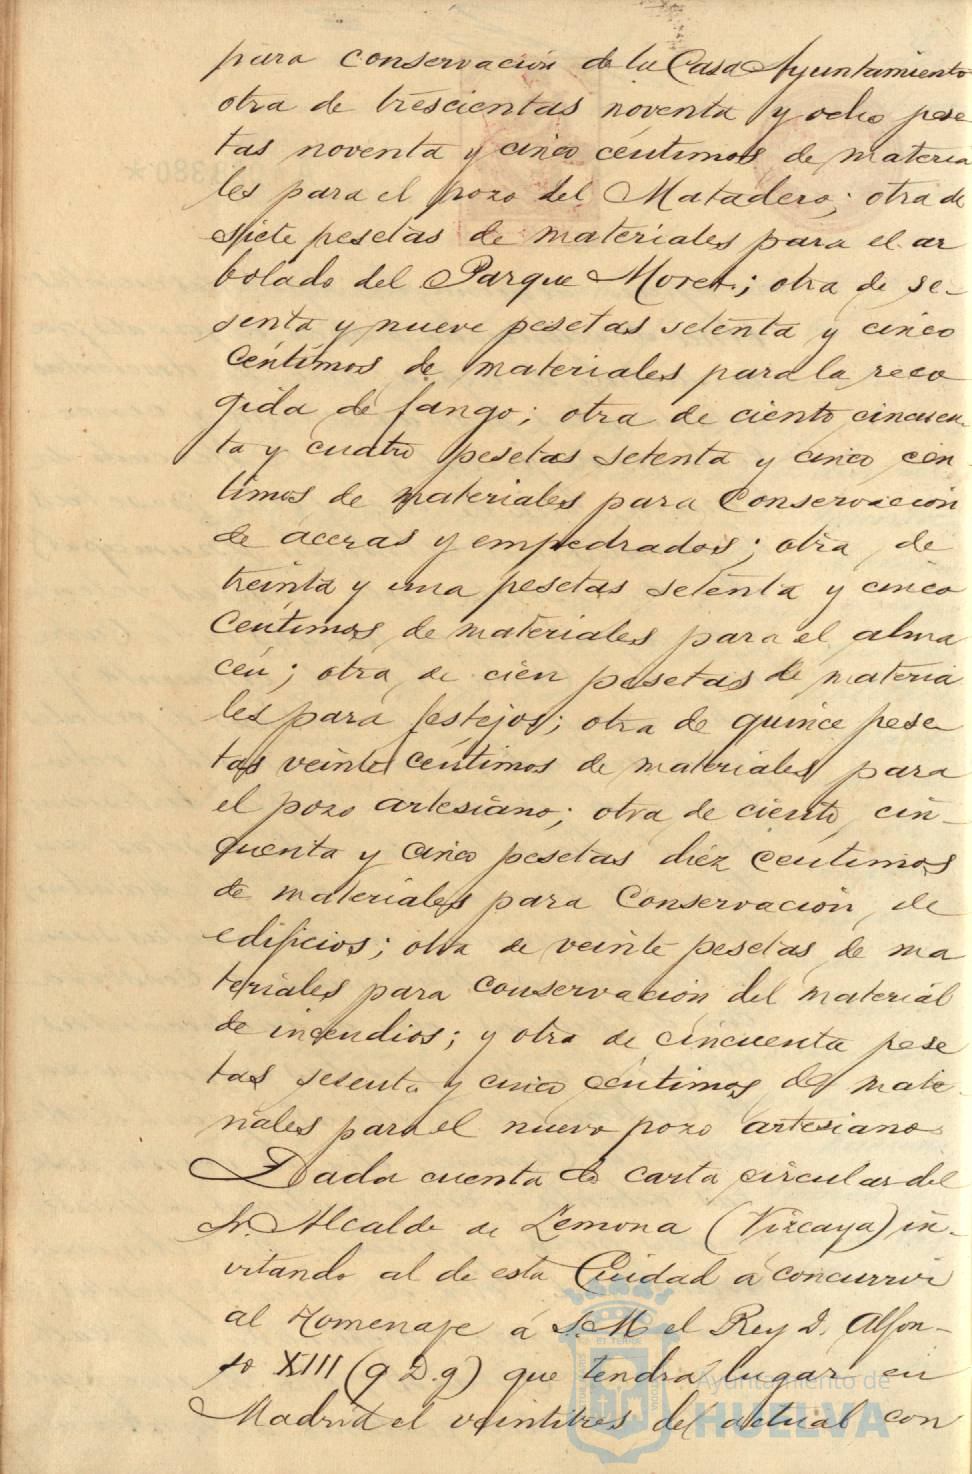 para conservación de la Casa Ayuntamiento
otra de trescientas noventa y ocho pese
tas noventa y cinco céntimos de materia
les para el pozo del Matadero; otra de
siete pesetas de materiales para el ar
bolado del Parque Moret; otra de se-
senta y nueve pesetas setenta y cinco
céntimos de materiales para la reco
gida de fango; otra de ciento cincuen-
ta y cuatro pesetas setenta y cinco cén
timos de materiales para conservación
de aceras y empedrados; otra de
treinta y una pesetas setenta y cinco
céntimos de materiales para el alma
cén; otra de cien pesetas de materia
les para festejos; otra de quince pese
tas veinte céntimos de materiales para
el pozo artesiano; otra de ciento cin-
quenta y cinco pesetas diéz céntimos
de materiales para conservación de
edificios; otra de veinte pesetas de ma
teriales para conservación del material
de incendios; y otra de cincuenta pese
tas sesenta y cinco céntimos de mate
riales para el nuevo pozo artesiano
Dada cuenta de carta circular del
Sr. Alcalde de Lemona (Vizcaya) in-
vitando al de esta Ciudad á concurrir
al Homenaje á S. M. el Rey D. Alfon-
so XIII (q D. g) que tendrá lugar en
Madrid el veintitres del actual con
Ayuntamiento de
HUELVA